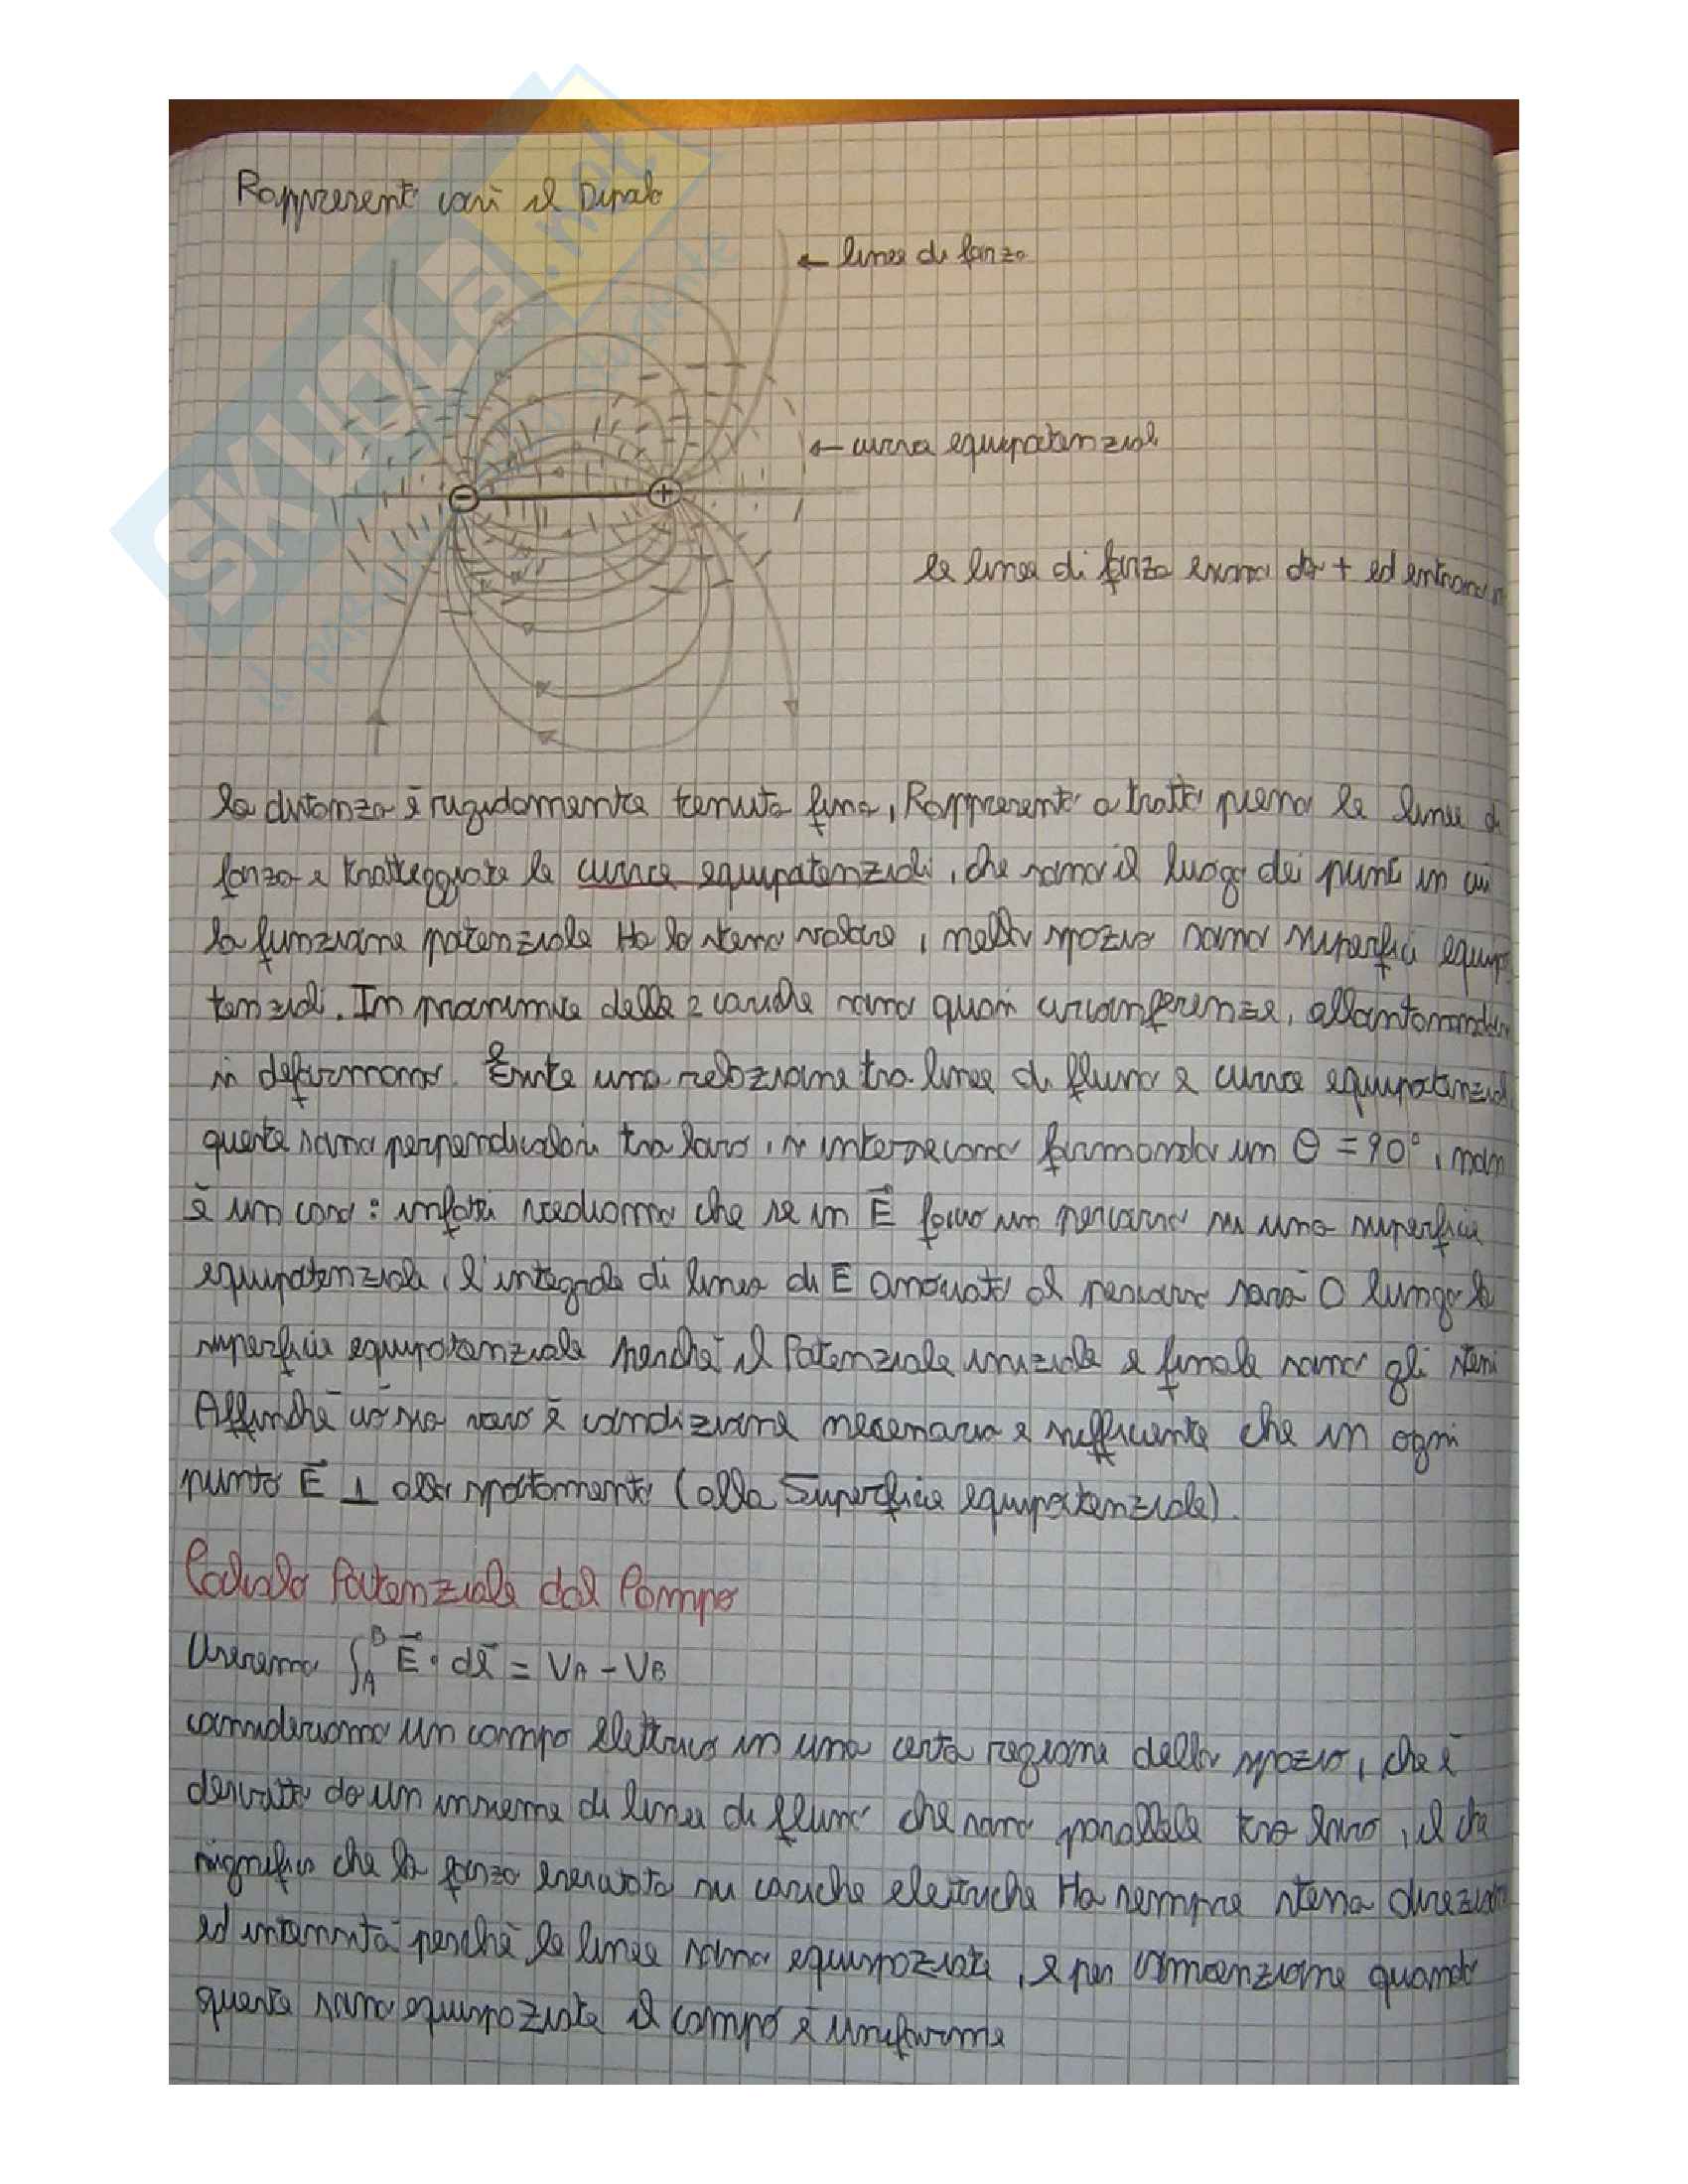 Rappresento così il Dipolo
← linee di forza
← curva equipotenziale
−
+
le linee di forza escono da + ed entrano in
la distanza è rigidamente tenuta fissa, Rappresento a tratto pieno le linee di
forza e tratteggiate le curve equipotenziali, che sono il luogo dei punti in cui
la funzione potenziale Ha lo stesso valore, nello spazio sono superfici equipo
tenziali. In prossimità delle 2 cariche sono quasi circonferenze, allontanandosi
si deformano. Esiste una relazione tra linee di flusso e curve equipotenziali
queste sono perpendicolari tra loro, si intersecano formando un θ = 90°, non
è un caso: infatti vediamo che se in E⃗ faccio un percorso su una superficie
equipotenziale, l'integrale di linea di E associato al percorso sarà 0 lungo la
superficie equipotenziale perchè il Potenziale iniziale e finale sono gli stessi
Affinchè ciò sia vero è condizione necessaria e sufficiente che in ogni
punto E⃗ ⊥ allo spostamento (alla Superficie equipotenziale).
Calcolo Potenziale dal Campo
Useremo ∫_A^B E⃗ · dl⃗ = VA − VB
consideriamo un campo elettrico in una certa regione dello spazio, che è
descritto da un insieme di linee di flusso che sono parallele tra loro, il che
significa che la forza esercitata su cariche elettriche Ha sempre stessa direzione
ed intensità perchè le linee sono equispaziate, e per convenzione quando
queste sono equispaziate il campo è uniforme
SKUOLA.net
il paradiso dello studente